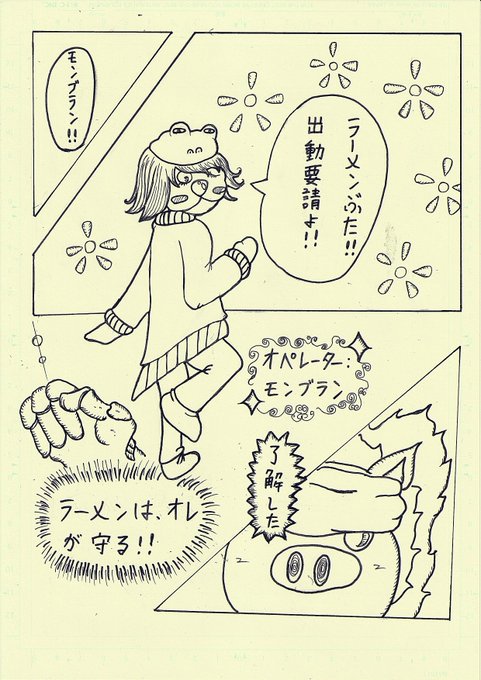 ラーメンぶた!!
出動要請よ!!
モンブラン!!
オペレーター:
モンブラン
了解した
ラーメンは、オレ
が守る!!